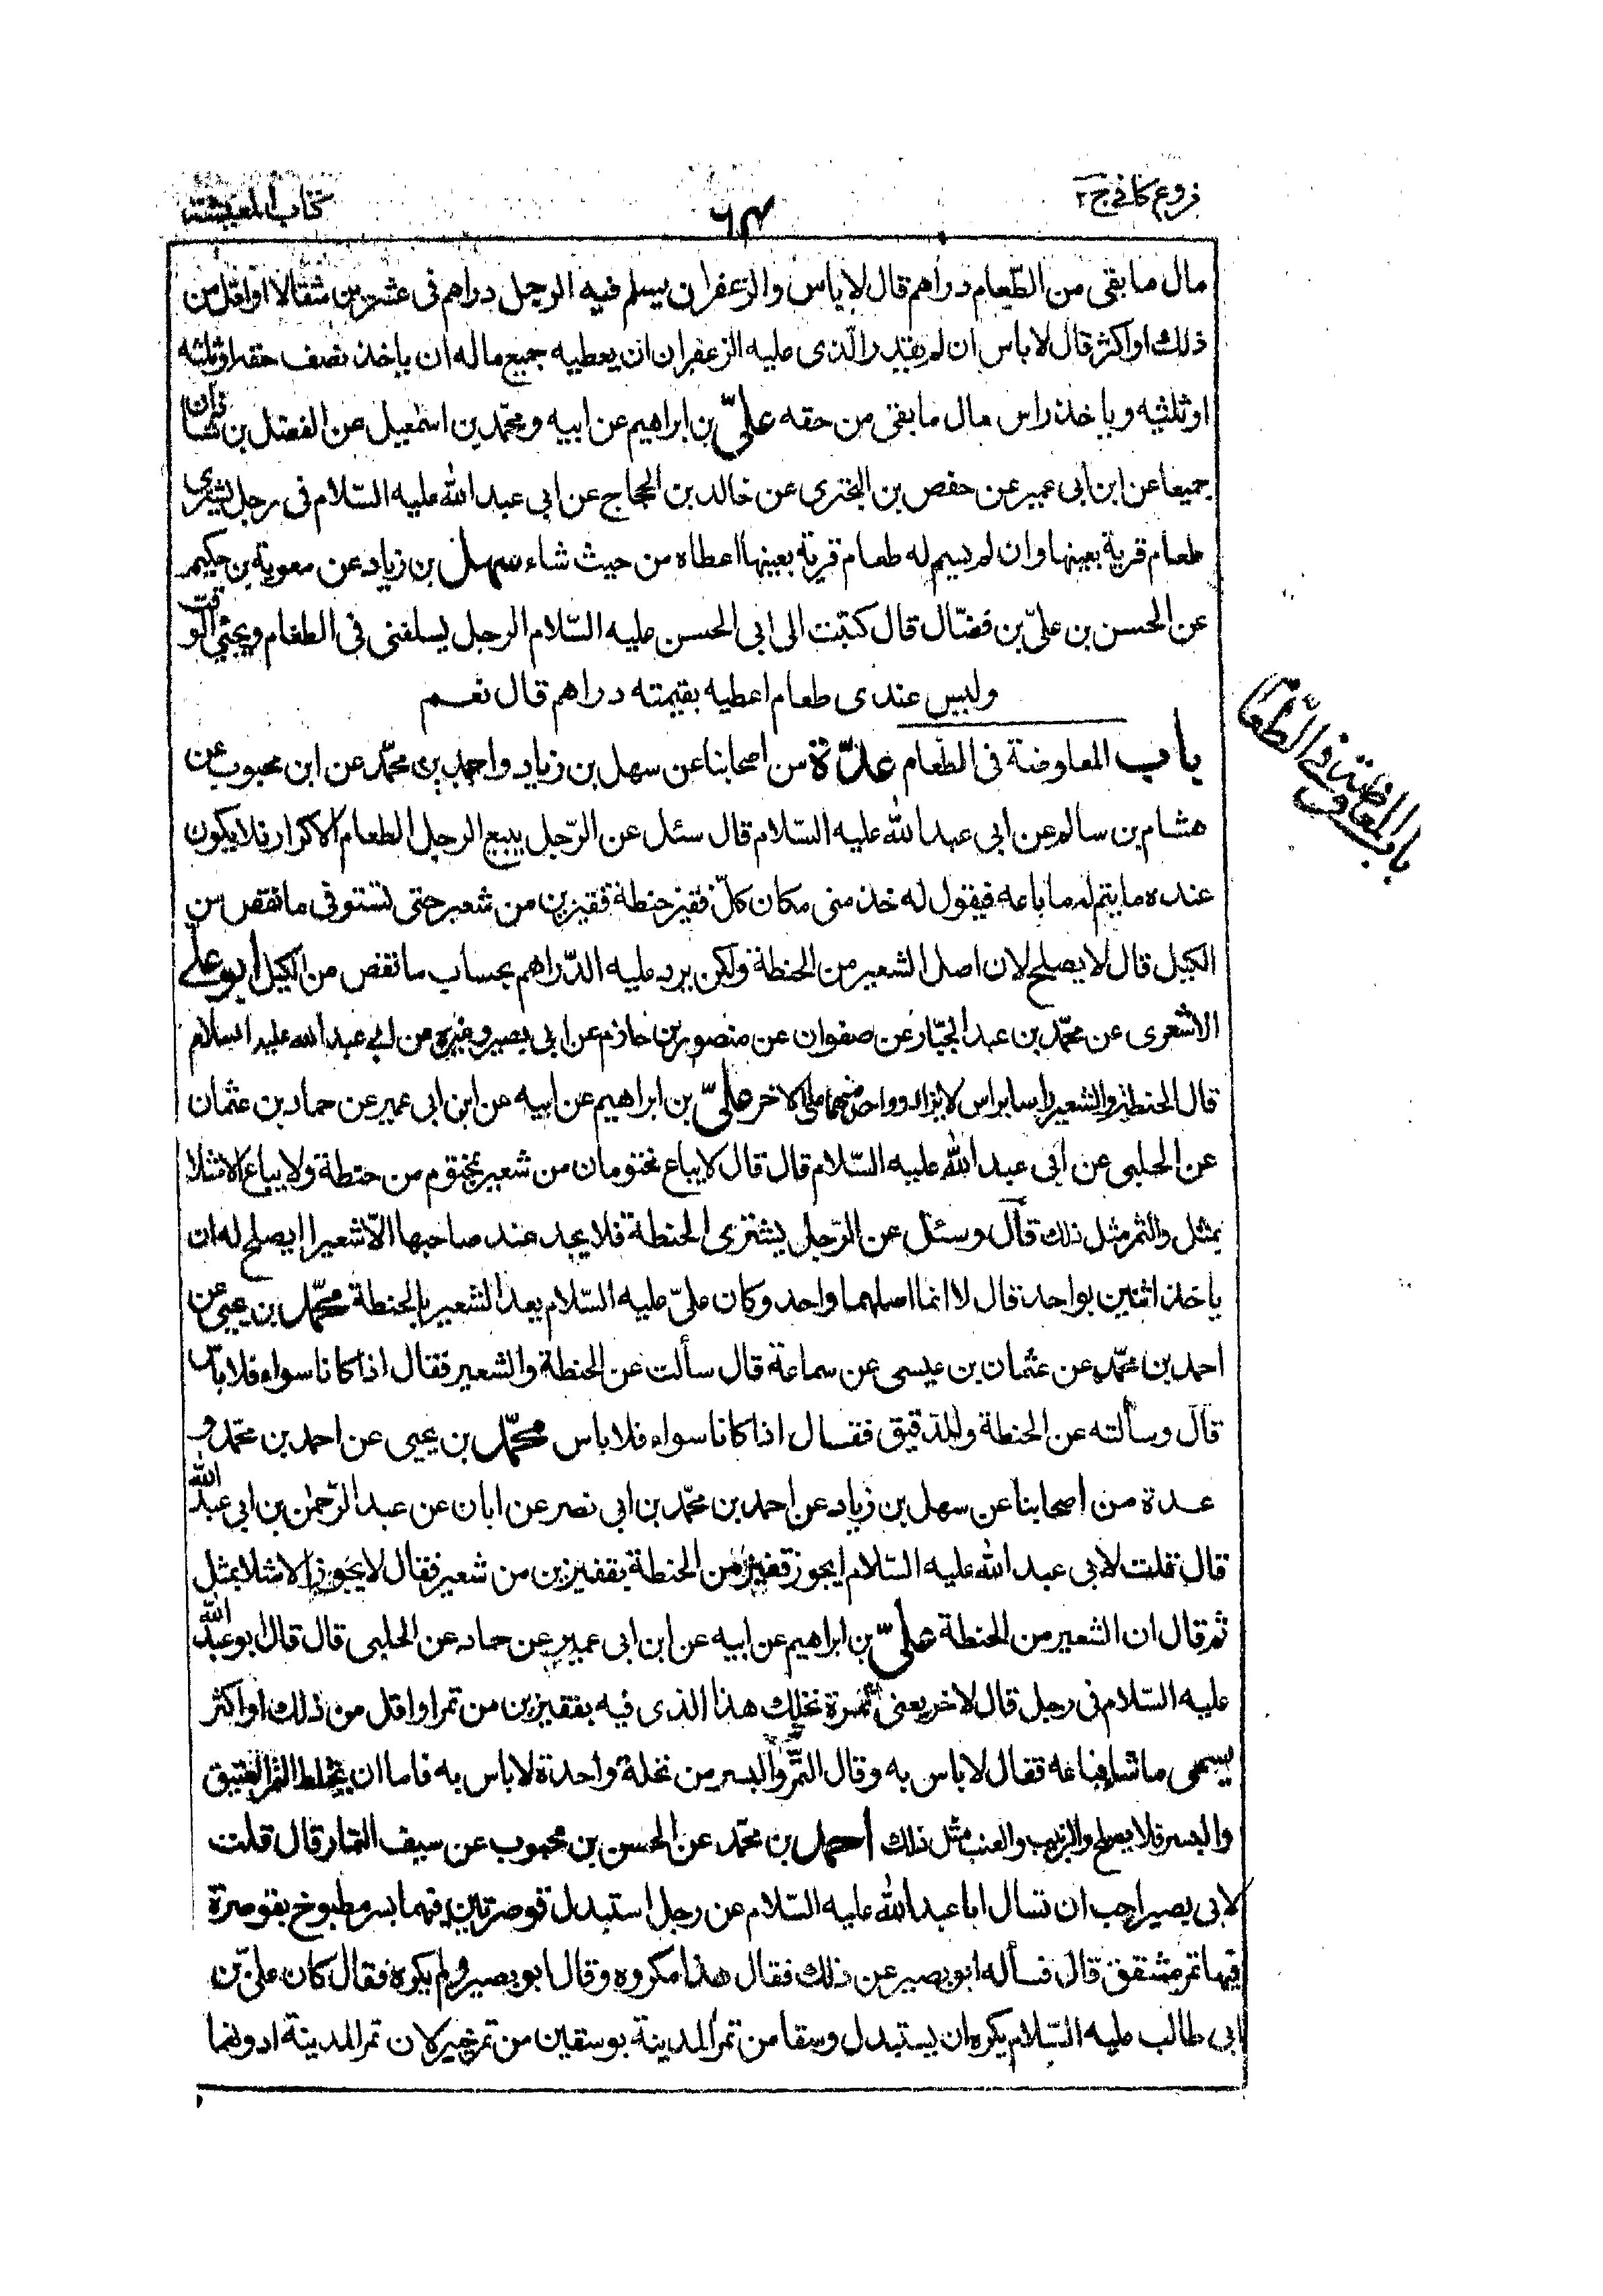 فروع كافي ج٢
كتاب المعيشة
مال ما بقى من الطّعام دراهم قال لا باس والزعفران يسلم فيه الرجل دراهم فى عشرين مثقالا او اقل من
ذلك او اكثر قال لا باس ان لم يقدر الّذى عليه الزعفران ان يعطيه جميع ماله ان ياخذ نصف حقه او ثلثه
او ثلثيه و ياخذ راس مال ما بقى من حقه علىّ بن ابراهيم عن ابيه و محمّد بن اسمعيل عن الفضل بن شاذان
جميعا عن ابن ابى عمير عن حفص بن البخترى عن خالد بن الحجاج عن ابى عبد الله عليه السّلام فى رجل يشترى
طعام قرية بعينها وان لم يسم له طعام قرية بعينها اعطاه من حيث شاء سهل بن زياد عن معوية بن حكيم
عن الحسن بن علىّ بن فضّال قال كتبت الى ابى الحسن عليه السّلام الرجل يسلفنى فى الطعام و يجئ الوقت
وليس عندى طعام اعطيه بقيمته دراهم قال نعم
باب المعاوضة فى الطّعام
باب المعاوضة فى الطّعام عدّة من اصحابنا عن سهل بن زياد و احمد بن محمّد عن ابن محبوب عن
هشام بن سالم عن ابى عبد الله عليه السّلام قال سئل عن الرّجل يبيع الرجل الطعام الاكرار فلا يكون
عنده ما يتم له ما باعه فيقول له خذ منى مكان كلّ قفيز حنطة قفيزين من شعير حتى تستوفى ما نقص من
الكيل قال لا يصلح لان اصل الشعير من الحنطة ولكن يرد عليه الدّراهم بحساب ما نقص من الكيل ابو علىّ
الاشعرى عن محمّد بن عبد الجبّار عن صفوان عن منصور بن حازم عن ابى بصير وغيره عن ابى عبد الله عليه السلام
قال الحنطة والشعير راسا براس لا يزاد واحد منهما على الاخر علىّ بن ابراهيم عن ابيه عن ابن ابى عمير عن حماد بن عثمان
عن الحلبى عن ابى عبد الله عليه السّلام قال قال لا يباع مختومان من شعير بمختوم من حنطة ولا يباع الا مثلا
بمثل والثمر مثل ذلك قال وسئل عن الرّجل يشترى الحنطة فلا يجد عند صاحبها الّا شعيرا ايصلح له ان
ياخذ اثنين بواحد قال لا انما اصلهما واحد وكان علىّ عليه السّلام يعد الشعير بالحنطة محمّد بن يحيى عن
احمد بن محمّد عن عثمان بن عيسى عن سماعة قال سألت عن الحنطة والشعير فقال اذا كانا سواء فلا باس
قال وسألته عن الحنطة والدقيق فقال اذا كانا سواء فلا باس محمّد بن يحيى عن احمد بن محمّد و
عدة من اصحابنا عن سهل بن زياد عن احمد بن محمّد بن ابى نصر عن ابان عن عبد الرّحمن بن ابى عبد الله
قال قلت لابى عبد الله عليه السّلام ايجوز قفيز من الحنطة بقفيزين من شعير فقال لا يجوز الا مثلا بمثل
ثم قال ان الشعير من الحنطة علىّ بن ابراهيم عن ابيه عن ابن ابى عمير عن حماد عن الحلبى قال قال ابو عبد الله
عليه السّلام فى رجل قال لاخر بعنى ثمرة نخلك هذا الذى فيه بقفيزين من تمر او اقل من ذلك او اكثر
يسمى ما شاء فباعه فقال لا باس به وقال التّمر والبسر من نخلة واحدة لا باس به فاما ان يخلط التمر العتيق
والبسر فلا يصلح والزبيب والعنب مثل ذلك احمد بن محمّد عن الحسن بن محبوب عن سيف التمار قال قلت
لابى بصير احب ان تسال ابا عبد الله عليه السّلام عن رجل استبدل قوصرتين فيهما بسر مطبوخ بقوصرة
فيها تمر مشقق قال فسأله ابو بصير عن ذلك فقال هذا مكروه وقال ابو بصير ولم يكره فقال كان علىّ بن
ابى طالب عليه السّلام يكره ان يستبدل وسقا من تمر المدينة بوسقين من تمر خيبر لان تمر المدينة ادونهما